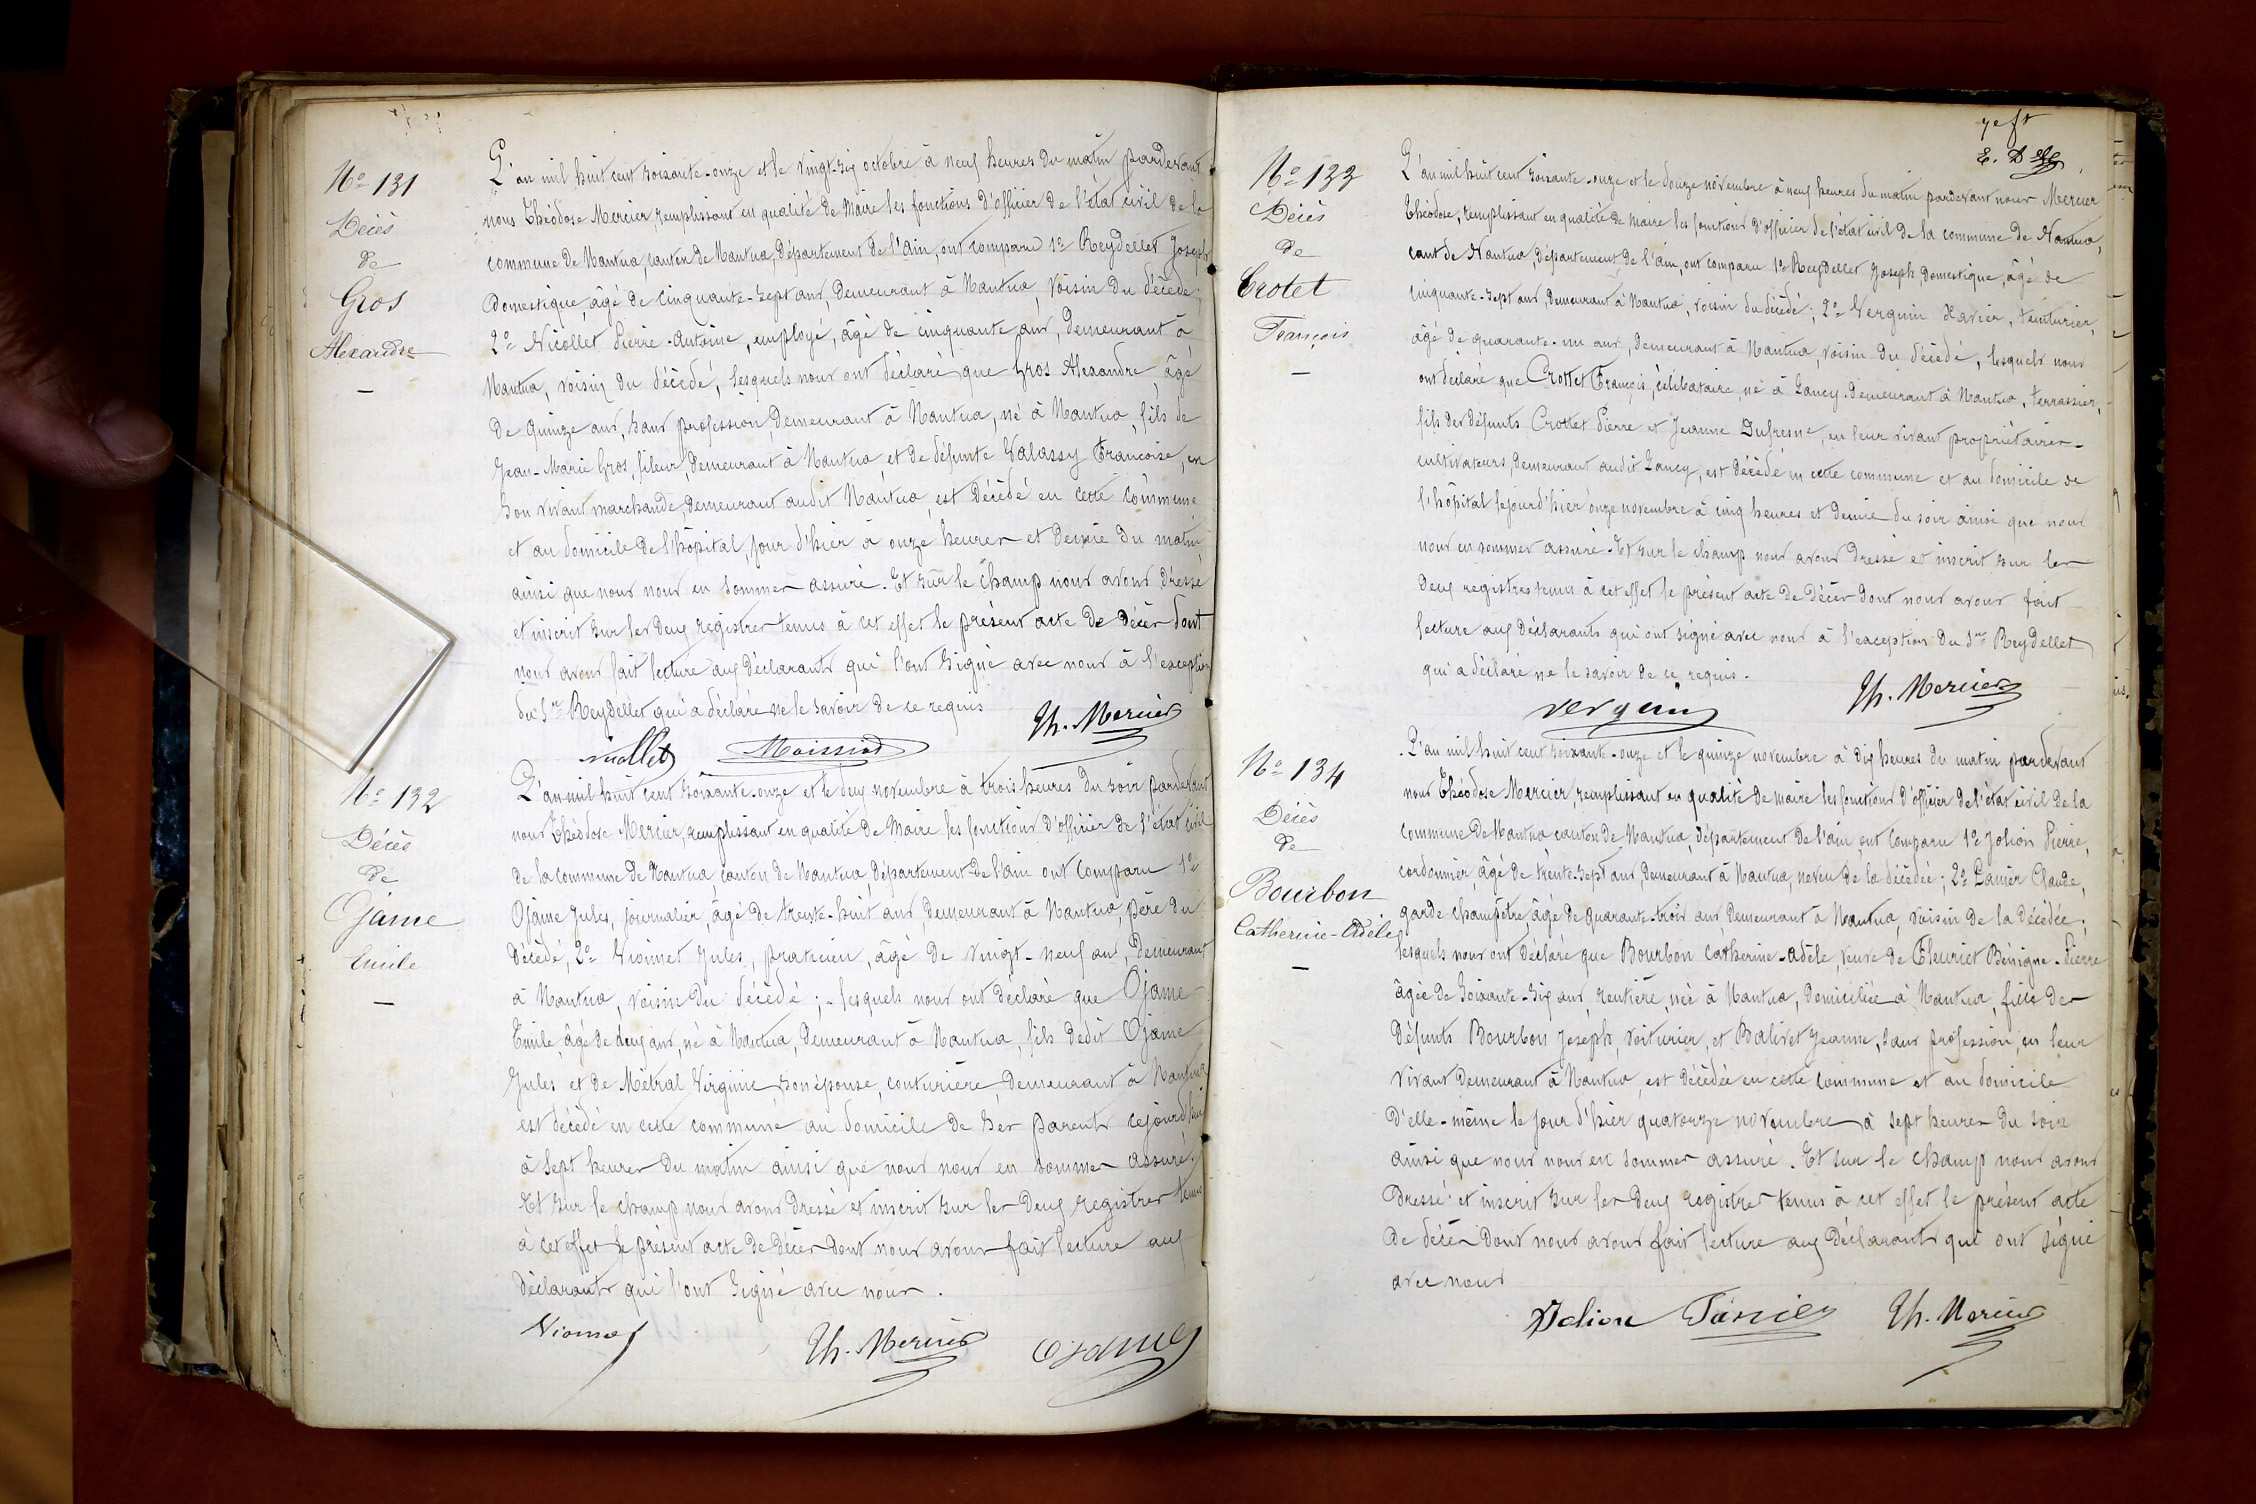 N° 131
Décès
de
Gros
Alexandre
L'an mil huit cent soixante-onze et le vingt-six octobre à neuf heures du matin pardevant
nous Théodose Mercier, remplissant en qualité de Maire les fonctions d'officier de l'état civil de la
commune de Nantua, canton de Nantua, Département de l'Ain, ont comparu 1° Reydellet Joseph
domestique, âgé de cinquante-sept ans, demeurant à Nantua, voisin du décédé;
2° Nicollet Pierre-Antoine, employé, âgé de cinquante ans, demeurant à
Nantua, voisin du décédé, lesquels nous ont déclaré que Gros Alexandre, âgé
de quinze ans, sans profession, demeurant à Nantua, né à Nantua, fils de
Jean-Marie Gros, fileur, demeurant à Nantua et de défunte Valassy Françoise, en
son vivant marchande, demeurant audit Nantua, est décédé en cette commune
et au domicile de l'hôpital, jour d'hier à onze heures et demie du matin
ainsi que nous nous en sommes assuré. Et sur le champ nous avons dressé
et inscrit sur les deux registres tenus à cet effet le présent acte de décès dont
nous avons fait lecture aux déclarants qui l'ont signé avec nous à l'exception
du Sr Reydellet qui a déclaré ne le savoir de ce requis
Th. Mercier
N° 132
Décès
de
Ojame
Emile
L'an mil huit cent soixante-onze et le deux novembre à trois heures du soir pardevant
nous Théodose Mercier, remplissant en qualité de Maire les fonctions d'officier de l'état civil
de la commune de Nantua, canton de Nantua, Département de l'ain ont comparu 1°
Ojame Jules, journalier, âgé de trente-huit ans, demeurant à Nantua, père du
décédé, 2° Vionnet Jules, praticien, âgé de vingt-neuf ans, demeurant
à Nantua, voisin du décédé; - lesquels nous ont déclaré que Ojame
Emile, âgé de deux ans, né à Nantua, demeurant à Nantua, fils dedit Ojame
Jules et de Métral Virginie, son épouse, couturière, demeurant à Nantua
est décédé en cette commune au domicile de ses parents cejourd'hui
à sept heures du matin ainsi que nous nous en sommes assuré.
Et sur le champ nous avons dressé et inscrit sur les deux registres tenus
à cet effet le présent acte de décès dont nous avons fait lecture aux
déclarants qui l'ont signé avec nous.
Th. Mercier Ojame
N° 133
Décès
de
Crotet
François
L'an mil huit cent soixante-onze et le douze novembre à neuf heures du matin pardevant nous Mercier
Théodose, remplissant en qualité de maire les fonctions d'officier de l'état civil de la commune de Nantua,
cant de Nantua, département de l'ain, ont comparu 1° Reydellet Joseph, domestique, âgé de
cinquante-sept ans, demeurant à Nantua, voisin du décédé; 2° Verguin Xavier, teinturier,
âgé de quarante-un ans, demeurant à Nantua, voisin du décédé, lesquels nous
ont déclaré que Crottet François, célibataire, né à Lancy, demeurant à Nantua, terrassier,
fils des défunts Crottet Pierre et Jeanne Dufresne, en leur vivant propriétaires-
cultivateurs, demeurant audit Lancy, est décédé en cette commune et au domicile de
l'hôpital le jour d'hier onze novembre à cinq heures et demie du soir ainsi que nous
nous en sommes assuré. Et sur le champ nous avons dressé et inscrit sur les
deux registres tenus à cet effet le présent acte de décès dont nous avons fait
lecture aux déclarants qui ont signé avec nous à l'exception du Sr Reydellet
qui a déclaré ne le savoir de ce requis.
Th. Mercier
N° 134
Décès
de
Bourbon
Catherine-Adèle
L'an mil huit cent soixante-onze et le quinze novembre à dix heures du matin pardevant
nous Théodose Mercier, remplissant en qualité de maire les fonctions d'officier de l'état civil de la
commune de Nantua, canton de Nantua, département de l'ain, ont comparu 1° Jolion Pierre,
cordonnier, âgé de trente-sept ans, demeurant à Nantua, neveu de la décédée; 2° Panier Claude,
garde champêtre, âgé de quarante-trois ans, demeurant à Nantua, voisin de la décédée,
lesquels nous ont déclaré que Bourbon Catherine-Adèle, veuve de Fleuriet Bénigne-Pierre
âgée de soixante-six ans, rentière, née à Nantua, domiciliée à Nantua, fille des
défunts Bourbon Joseph, voiturier, et Balivet Jeanne, sans profession, en leur
vivant demeurant à Nantua, est décédée en cette commune et au domicile
d'elle-même le jour d'hier quatorze novembre à sept heures du soir
ainsi que nous nous en sommes assuré. Et sur le champ nous avons
dressé et inscrit sur les deux registres tenus à cet effet le présent acte
de décès dont nous avons fait lecture aux déclarants qui ont signé
avec nous
Jolion Panier Th. Mercier